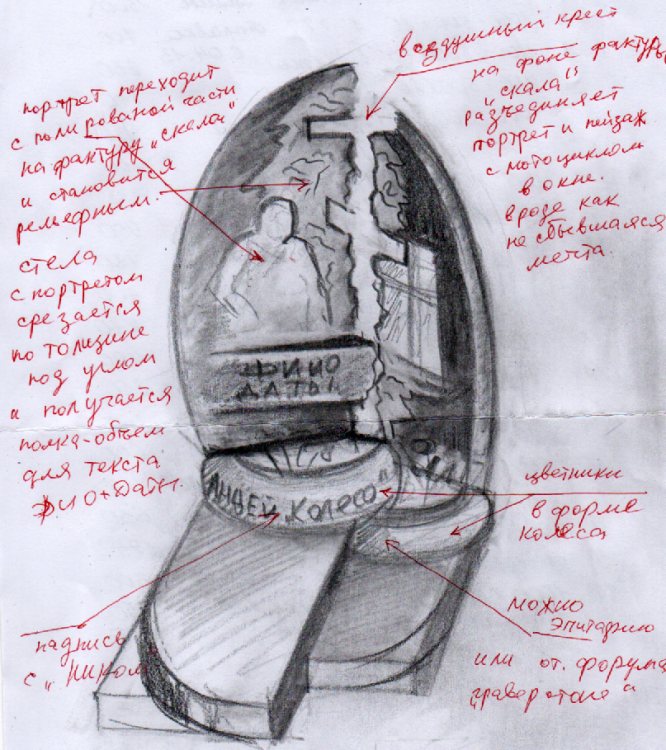 портрет переходит
с полированой части
на фактуру „скала"
и становится
рельефным.
стела
с портретом
срезается
по толщине
под углом
и получается
полка-объем
для текста
ФИО+Даты.
воздушный крест
на фоне фактуры
„скала"
разъединяет
портрет и пейзаж
с мотоциклом
в окне.
вроде как
не сбывшаяся
мечта.
ФИО
ДАТЫ
АНДЕЙ „Колесо"
цветники
в форме
колеса
можно
эпитафию
или от. форума
„граверстоне"
надпись
с „Ником